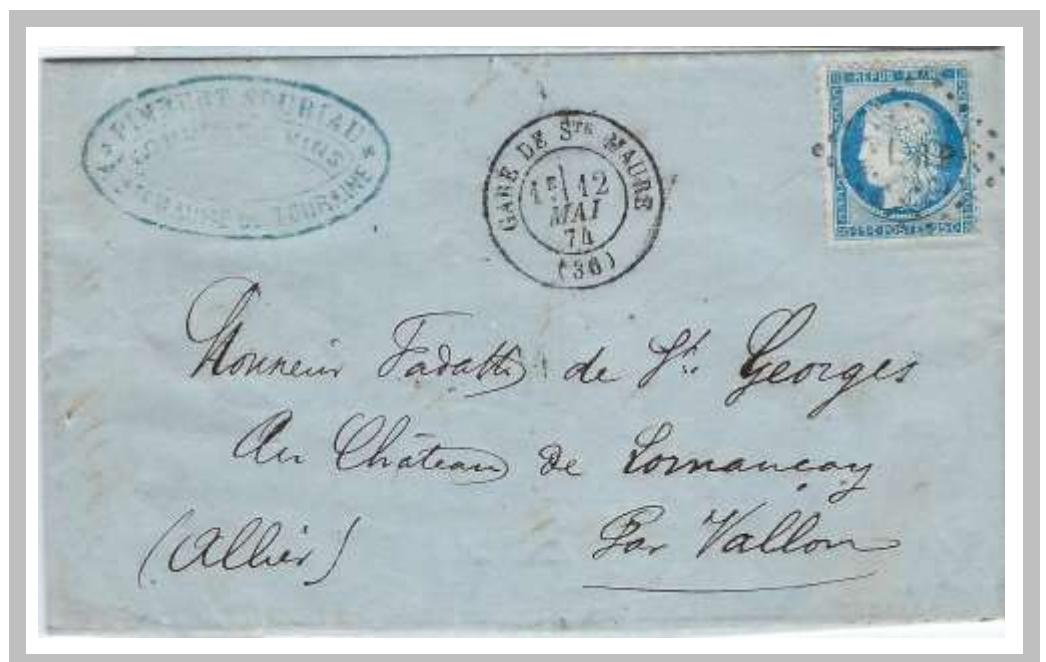 PIMBERT SOURIAU
VINS
TOURAINE
GARE DE STE MAURE
1E 12
MAI
74
(36)
REPUB FRANC
25 C POSTES 25 C
Monsieur Fadatte de St. Georges
Au Château de Lornançay
(Allier) Par Vallon